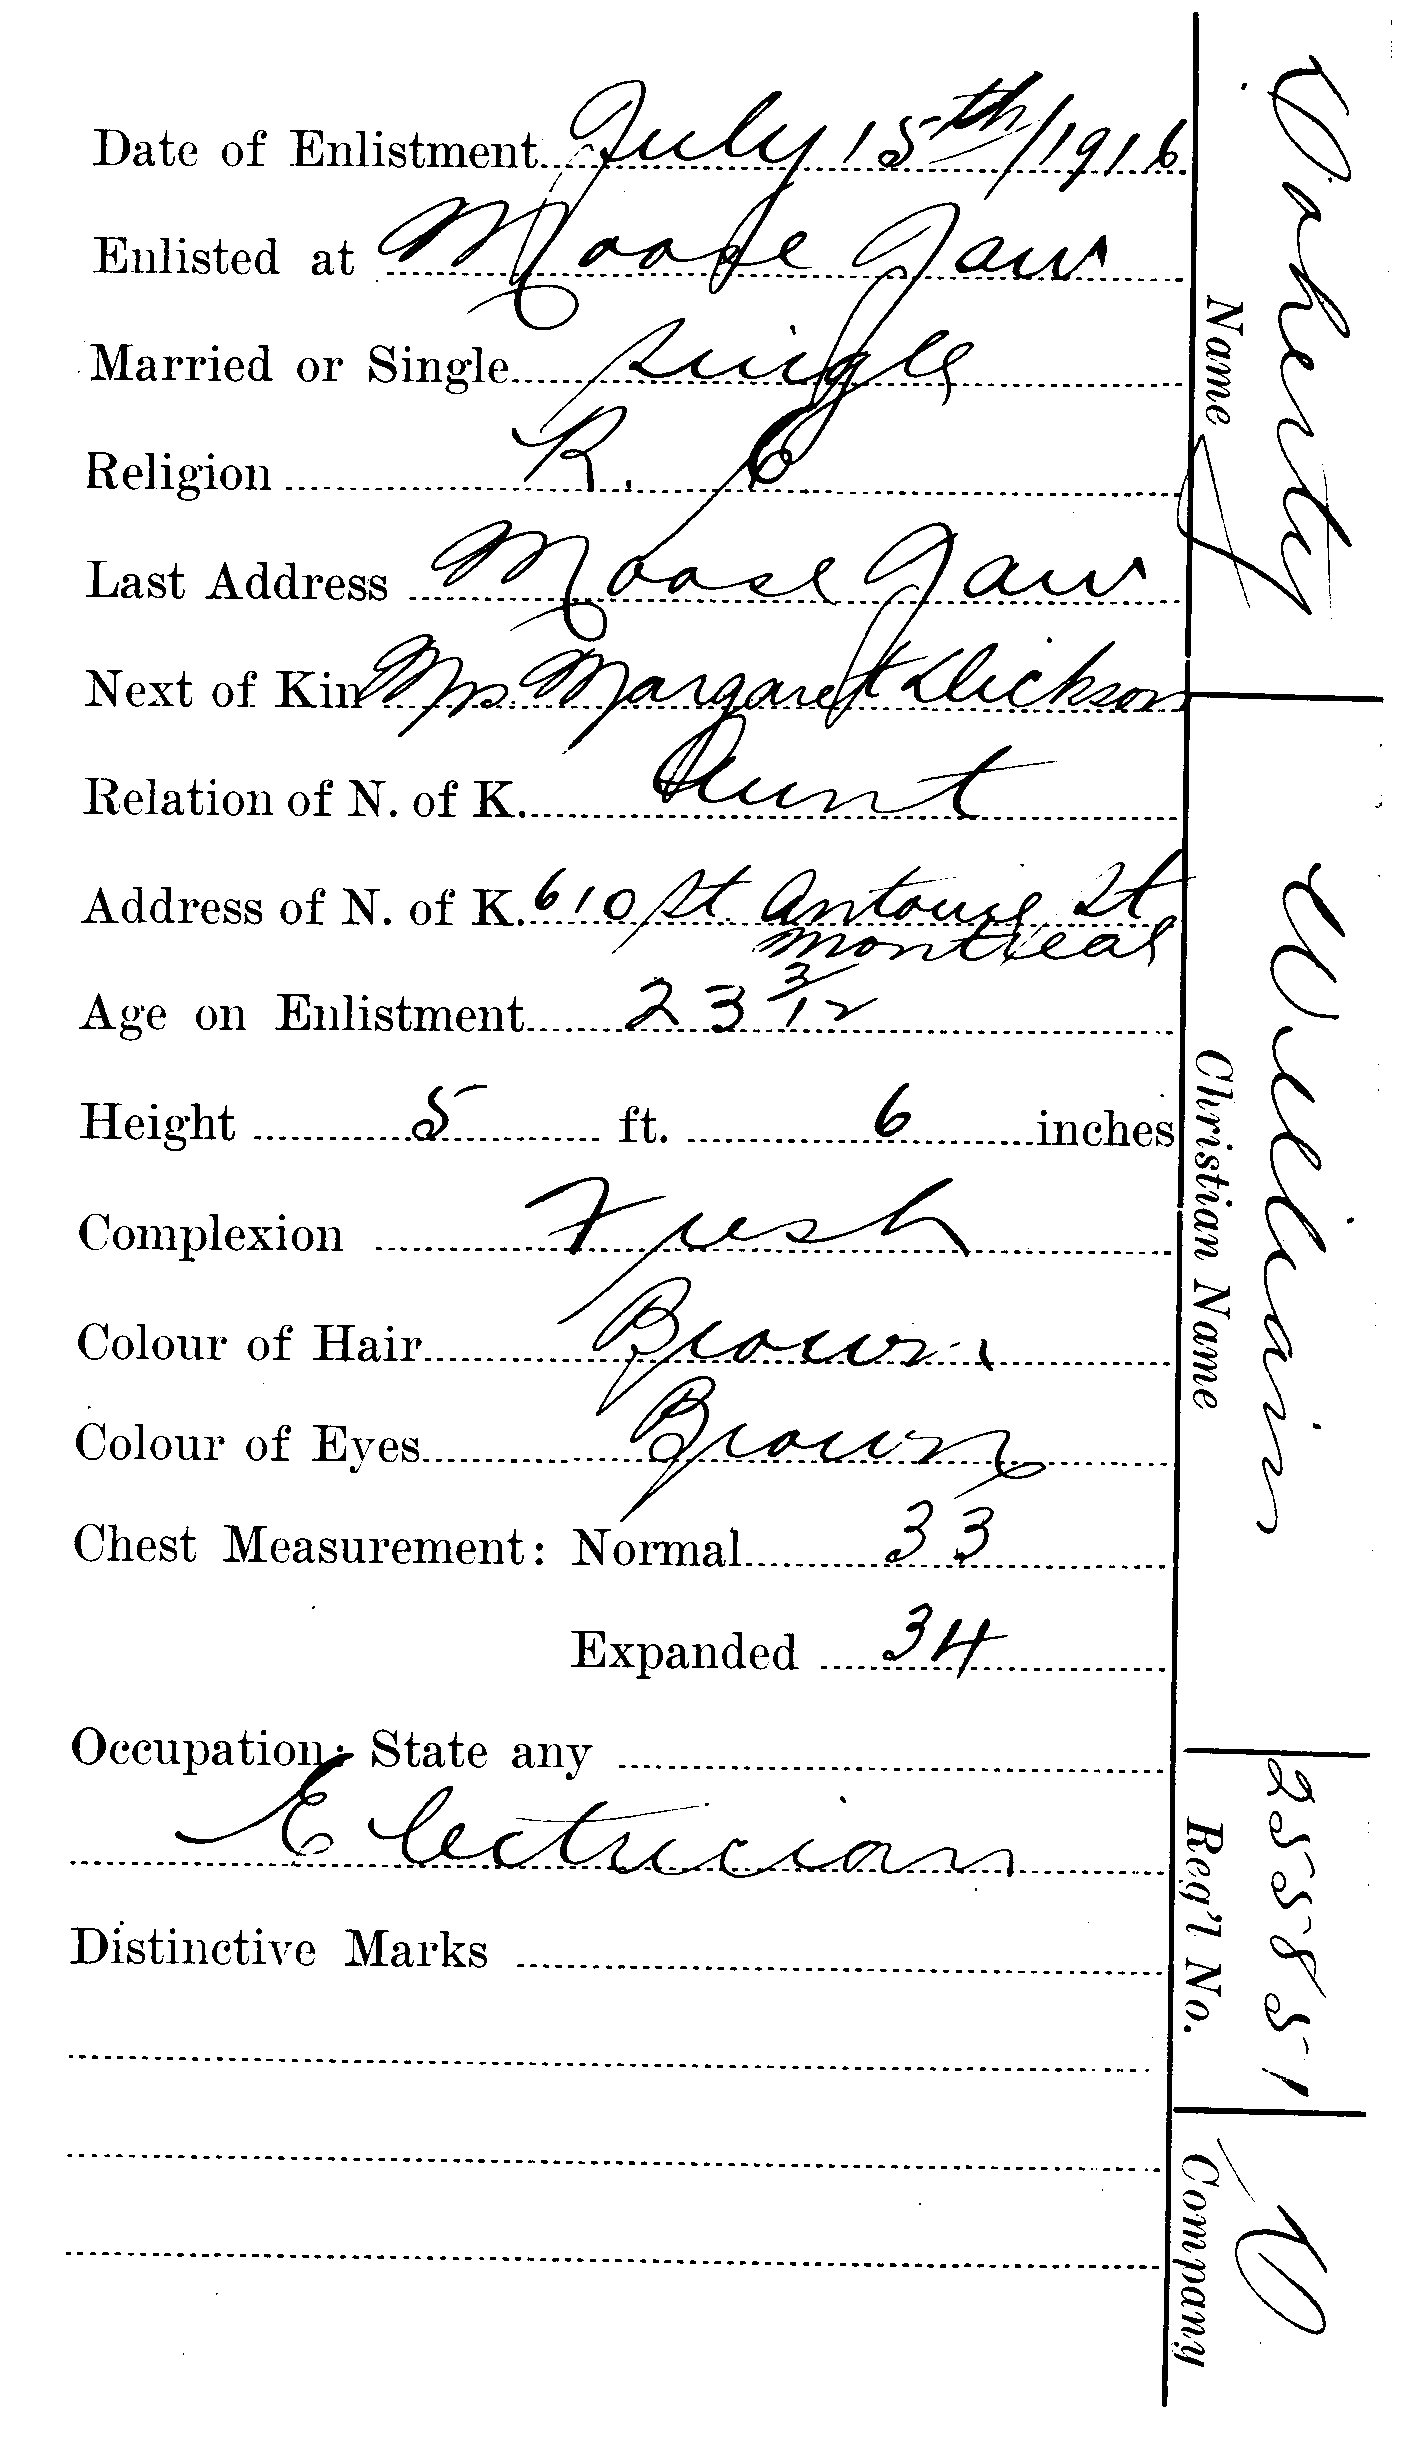 Date of Enlistment July 15th/1916
Enlisted at Moose Jaw
Married or Single single
Religion R. C
Last Address Moose Jaw
Next of Kin Mrs. Margaret Dickson
Relation of N. of K. Aunt
Address of N. of K. 610 St. Antoine St
Montreal
Age on Enlistment 23 3/12
Height 5 ft. 6 inches
Complexion Fresh
Colour of Hair Brown
Colour of Eyes Brown
Chest Measurement: Normal 33
Expanded 34
Occupation: State any
Electrician
Distinctive Marks
Doherty
Name
William
Christian Name
255851
Reg'l No.
D
Company